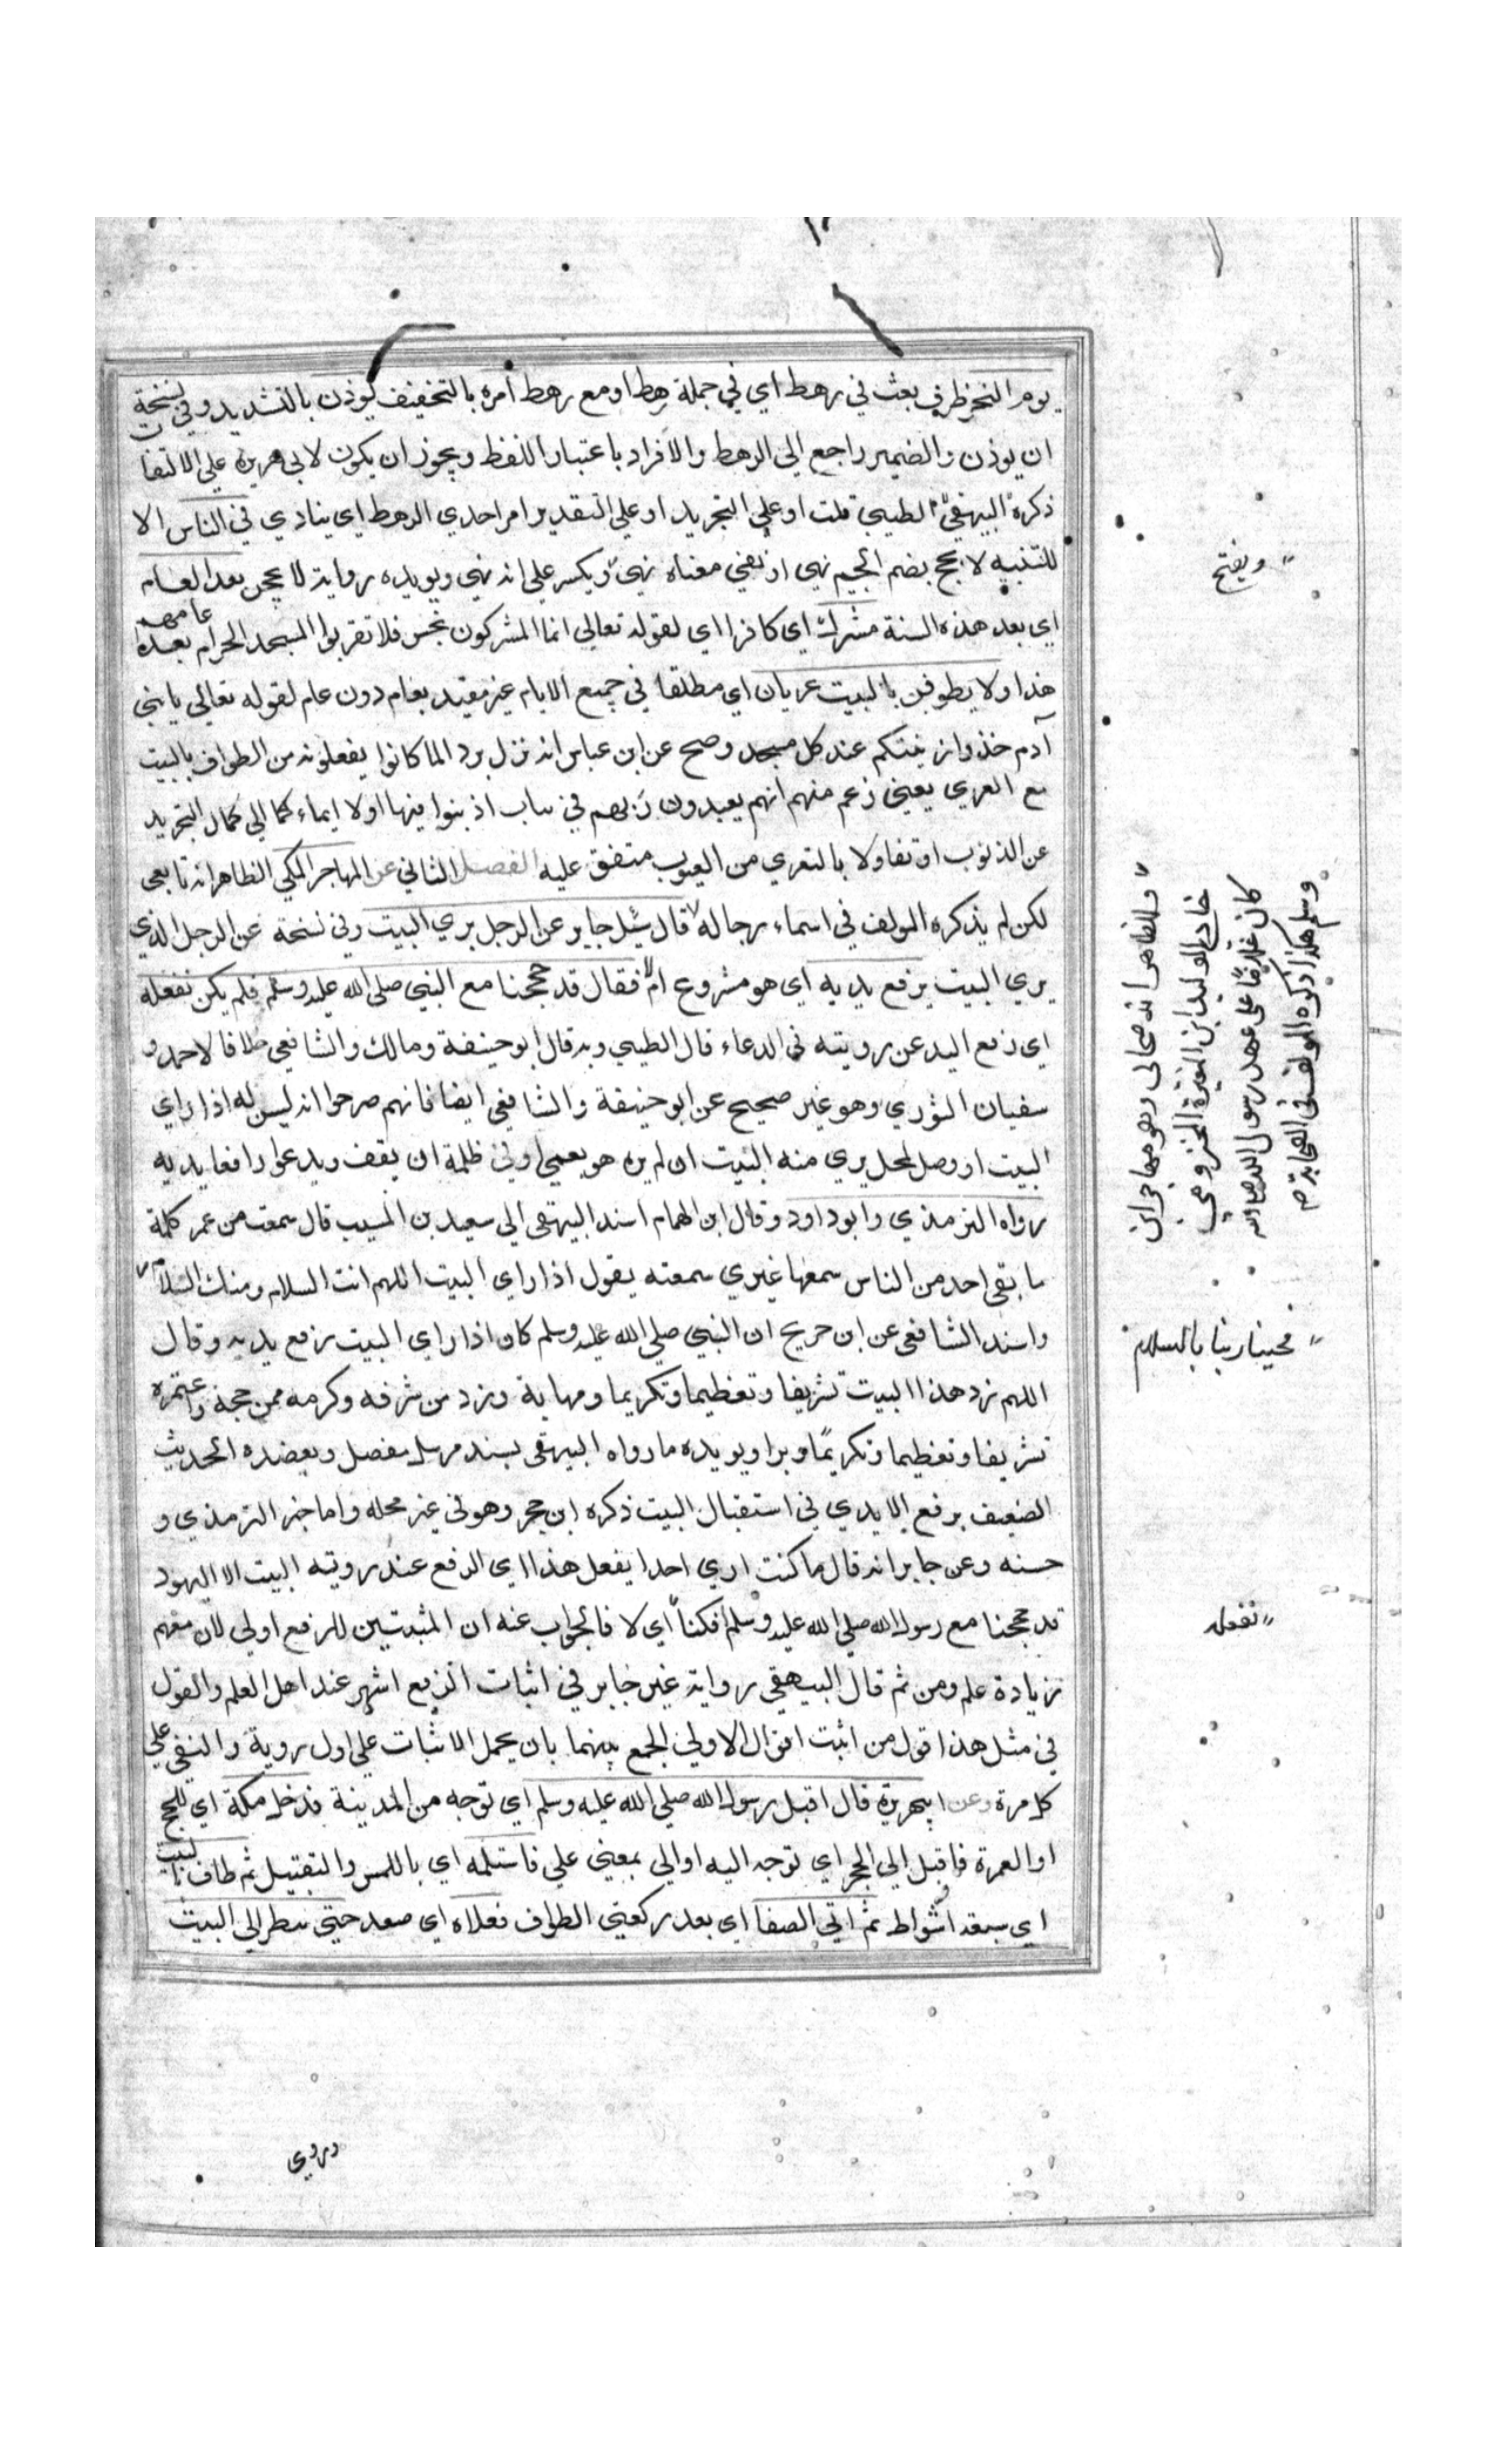 يوم النحر ظرف بعث في رهط اي في جملة رهط او مع رهط امره بالتخفيف يوذن بالتشديد وفي نسخة
ان يوذن والضمير راجع الي الرهط والافراد باعتبار اللفظ ويجوز ان يكون لابي هريرة علي الالتفات
ذكره الطيبي قلت او علي التجريد او علي التقدير امر احدي الرهط اي ينادي في الناس الا
للتنبيه لا يحج بضم الجيم نهي او نفي معناه نهي ويكسر علي انه نهي ويويده رواية لا يحجن بعد العام
اي بعد هذه السنة مشرك اي كافر اي لقوله تعالي انما المشركون نجس فلا تقربوا المسجد الحرام بعد عامهم
هذا ولا يطوفن بالبيت عريان اي مطلقا في جميع الايام غير مقيد بعام دون عام لقوله تعالي يا بني
آدم خذوا زينتكم عند كل مسجد وصح عن ابن عباس انه نزل برد الما كانوا يفعلونه من الطواف بالبيت
مع العري يعني زعم منهم انهم يعبدون ربهم في ثياب اذنبوا فيها اولا ايماء كما الي كمال التجريد
عن الذنوب او تفاولا بالتعري من العيوب متفق عليه الفصل الثاني عن المهاجر المكي الظاهر انه تابعي
لكن لم يذكره المولف في اسماء رجاله قال سئل جابر عن الرجل يري البيت وفي نسخة عن الرجل الذي
يري البيت يرفع يديه اي هو مشروع ام لا فقال قد حججنا مع النبي صلي الله عليه وسلم فلم يكن نفعله
اي رفع اليد عن رويته في الدعاء قال الطيبي وبه قال ابو حنيفة ومالك والشافعي خلافا لاحمد و
سفيان الثوري وهو غير صحيح عن ابو حنيفة والشافعي ايضا فانهم صرحوا انه ليس له اذا راي
البيت او وصل لمحل يري منه البيت ان لم يره هو يعمي او في ظلمة ان يقف ويدعوا رافعا يديه
رواه الترمذي وابو داود وقال ابن الهمام اسند البيهقي الي سعيد بن المسيب قال سمعت من عمر كلمة
ما بقي احد من الناس سمعها غيري سمعته يقول اذا راي البيت اللهم انت السلام ومنك السلام
واسند الشافعي عن ابن جريح ان النبي صلي الله عليه وسلم كان اذا راي البيت رفع يديه وقال
اللهم زد هذا البيت تشريفا وتعظيما وتكريما ومهابة وزد من شرفه وكرمه ممن حجه واعتمره
تشريفا وتعظيما وتكريمًا وبرا ويويده ما رواه البيهقي بسند مرسل معضل ويعضده الحديث
الضعيف برفع الايدي في استقبال البيت ذكره ابن حجر وهو في غير محله واما خبر الترمذي و
حسنه وعن جابر انه قال ما كنت اري احدا يفعل هذا اي الرفع عند رويته البيت الا اليهود
قد حججنا مع رسول الله صلي الله عليه وسلم افكنا اي لا فالجواب عنه ان المثبتين للرفع اولي لان معهم
زيادة علم ومن ثم قال البيهقي رواية غير جابر في اثبات الرفع اشهر عند اهل العلم والقول
في مثل هذا قول من اثبت اقول الاولي الجمع بينهما بان يحمل الاثبات علي اول روية والنفي علي
كل مرة وعن ابي هريرة قال اقبل رسول الله صلي الله عليه وسلم اي توجه من المدينة فدخل مكة اي للحج
او العمرة فاقبل الي الحجر اي توجه اليه او الي بمعني علي فاستلمه اي باللمس والتقبيل ثم طاف بالبيت
اي سبعة اشواط ثم اتي الصفا اي بعد ركعتي الطواف فعلاه اي صعد حتي ينظر الي البيت
ويفتح
والظاهر انه صحابي وهو مهاجر ابن
خالد الوليد ابن المغيرة المخزومي
كان غلامًا علي عهد رسول الله صلي الله
وسلم هكذا ذكره المولف في الصحابة
فحينا ربنا بالسلام
نفعله